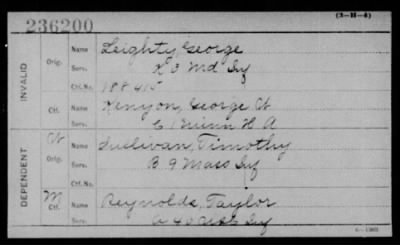 236200
(3-H-4)
INVALID
Orig.
Name Leighty, George
Serv. K 3 Md Inf
Ctf. No. 188415
Ctf.
Name Kenyon, George W
Serv. C 1 Minn H A
DEPENDENT
W
Orig.
Name Sullivan, Timothy
Serv. B 9 Mass Inf
Ctf. No.
M
Ctf.
Name Reynolds, Taylor
Serv. Inf